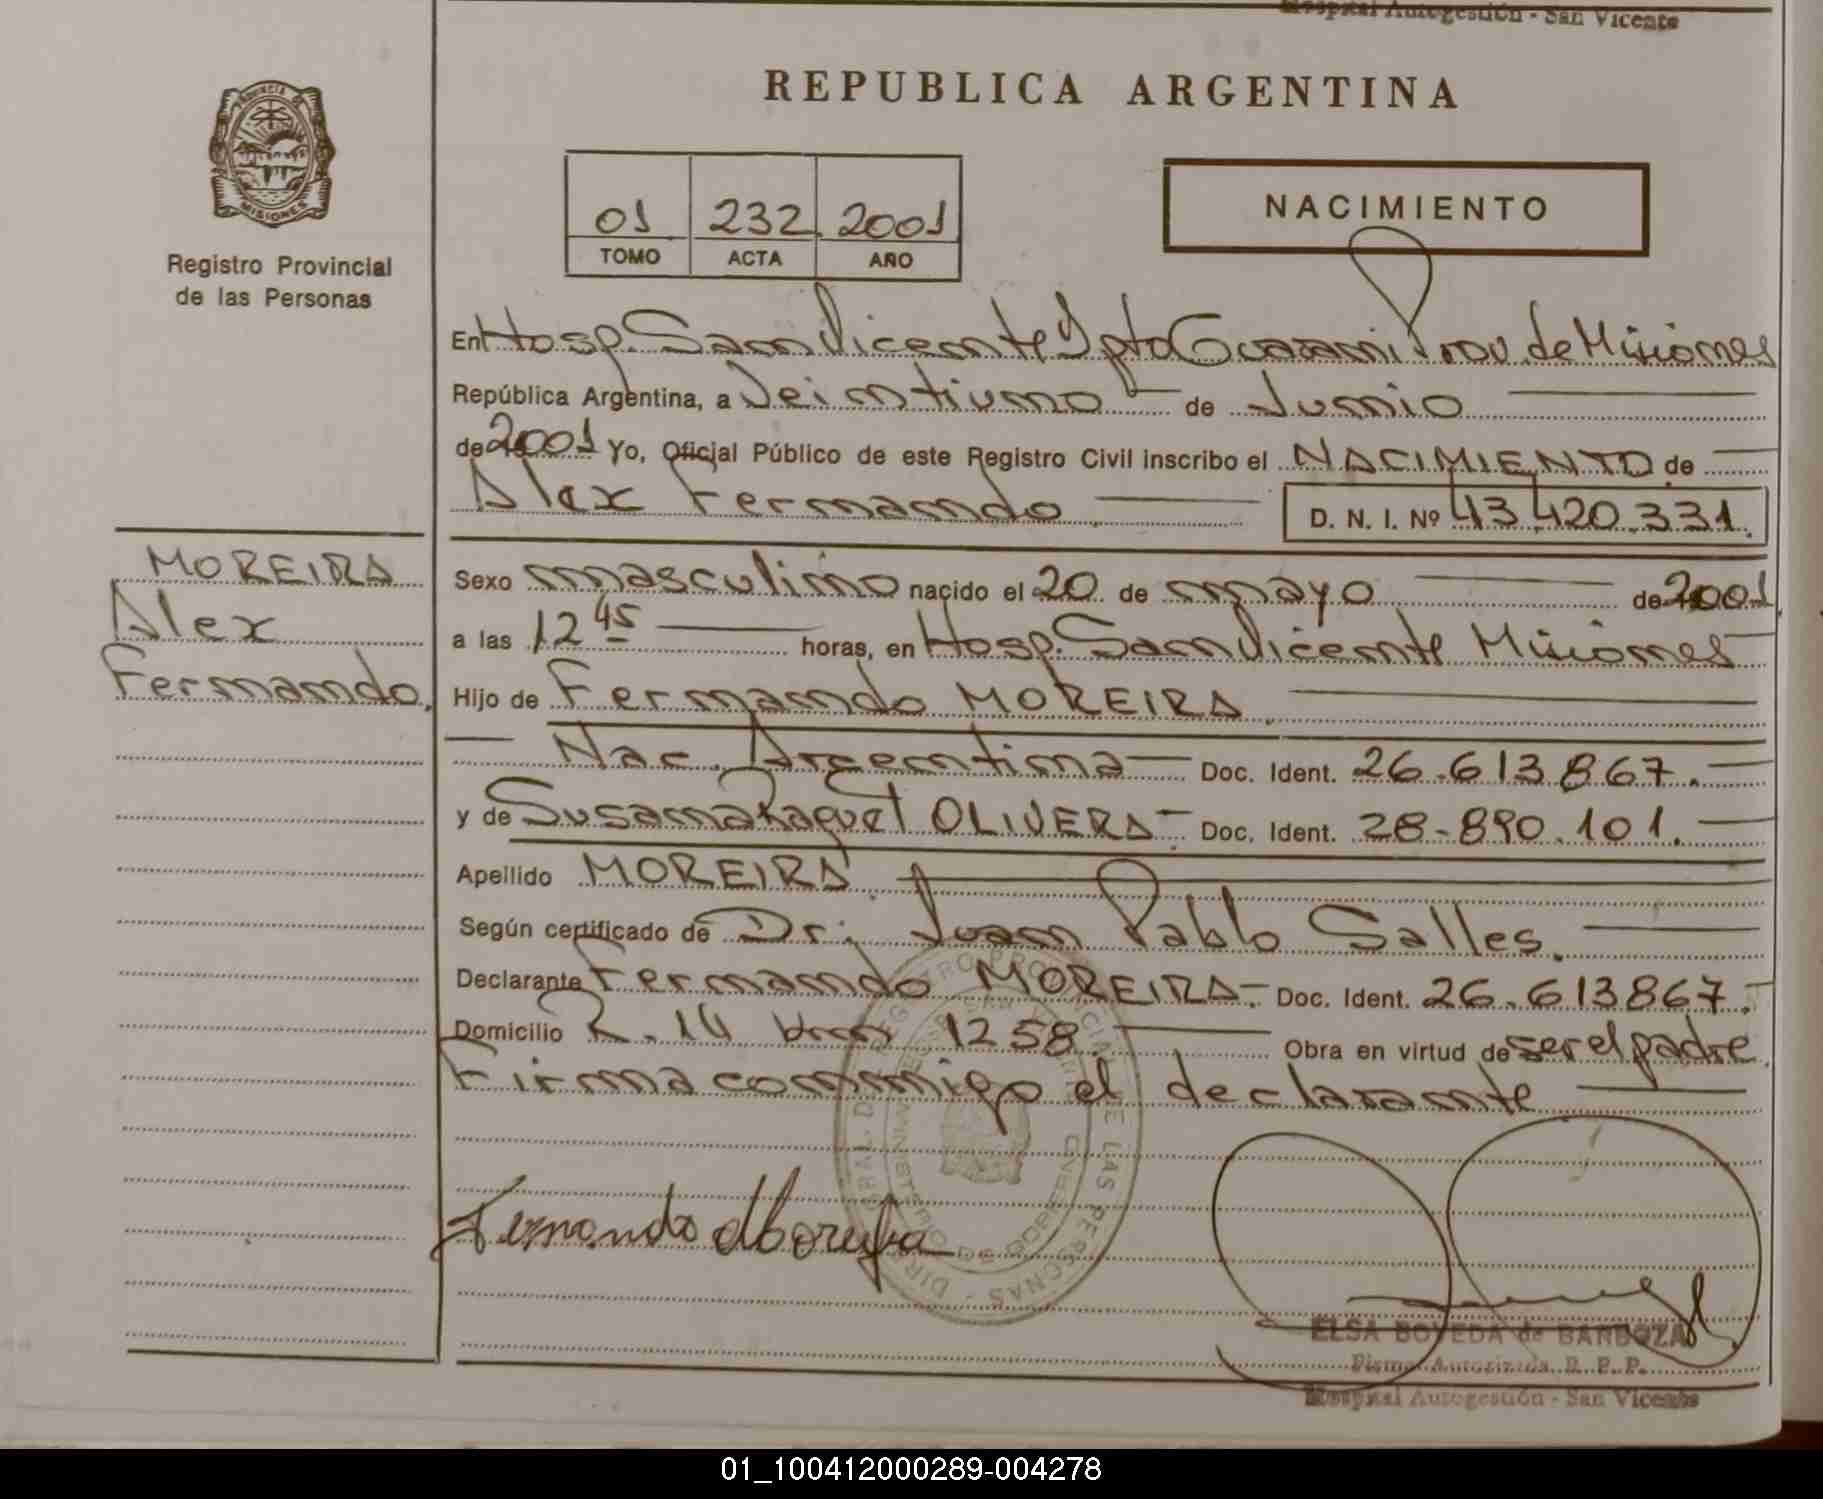 Hospital Autogestión - San Vicente
REPUBLICA ARGENTINA
PROVINCIA DE
MISIONES
Registro Provincial
de las Personas
01 232 2001
TOMO ACTA AÑO
NACIMIENTO
En Hosp. San Vicente Dpto Guarani Prov de Misiones
República Argentina, a Veintiuno de Junio
de 2001 Yo, Oficial Público de este Registro Civil inscribo el NACIMIENTO de
Alex Fernando D. N. I. Nº 43.420.331.
MOREIRA
Alex
Fernando.
Sexo masculino nacido el 20 de mayo de 2001
a las 12 45 horas, en Hosp. San Vicente Misiones
Hijo de Fernando MOREIRA.
Nac. Argentina Doc. Ident. 26.613867.
y de Susana Raquel OLIVERA Doc. Ident. 28-890.101.
Apellido MOREIRA.
Según certificado de Dr. Juan Pablo Salles.
Declarante Fernando MOREIRA. Doc. Ident. 26.613867.
Domicilio R. 14 km 1258. Obra en virtud de ser el padre.
Firma conmigo el declarante
Fernando Moreira
ELSA BOVEDA de BARBOZA
Firma Autorizada R. P. P.
Hospital Autogestión - San Vicente
01_100412000289-004278